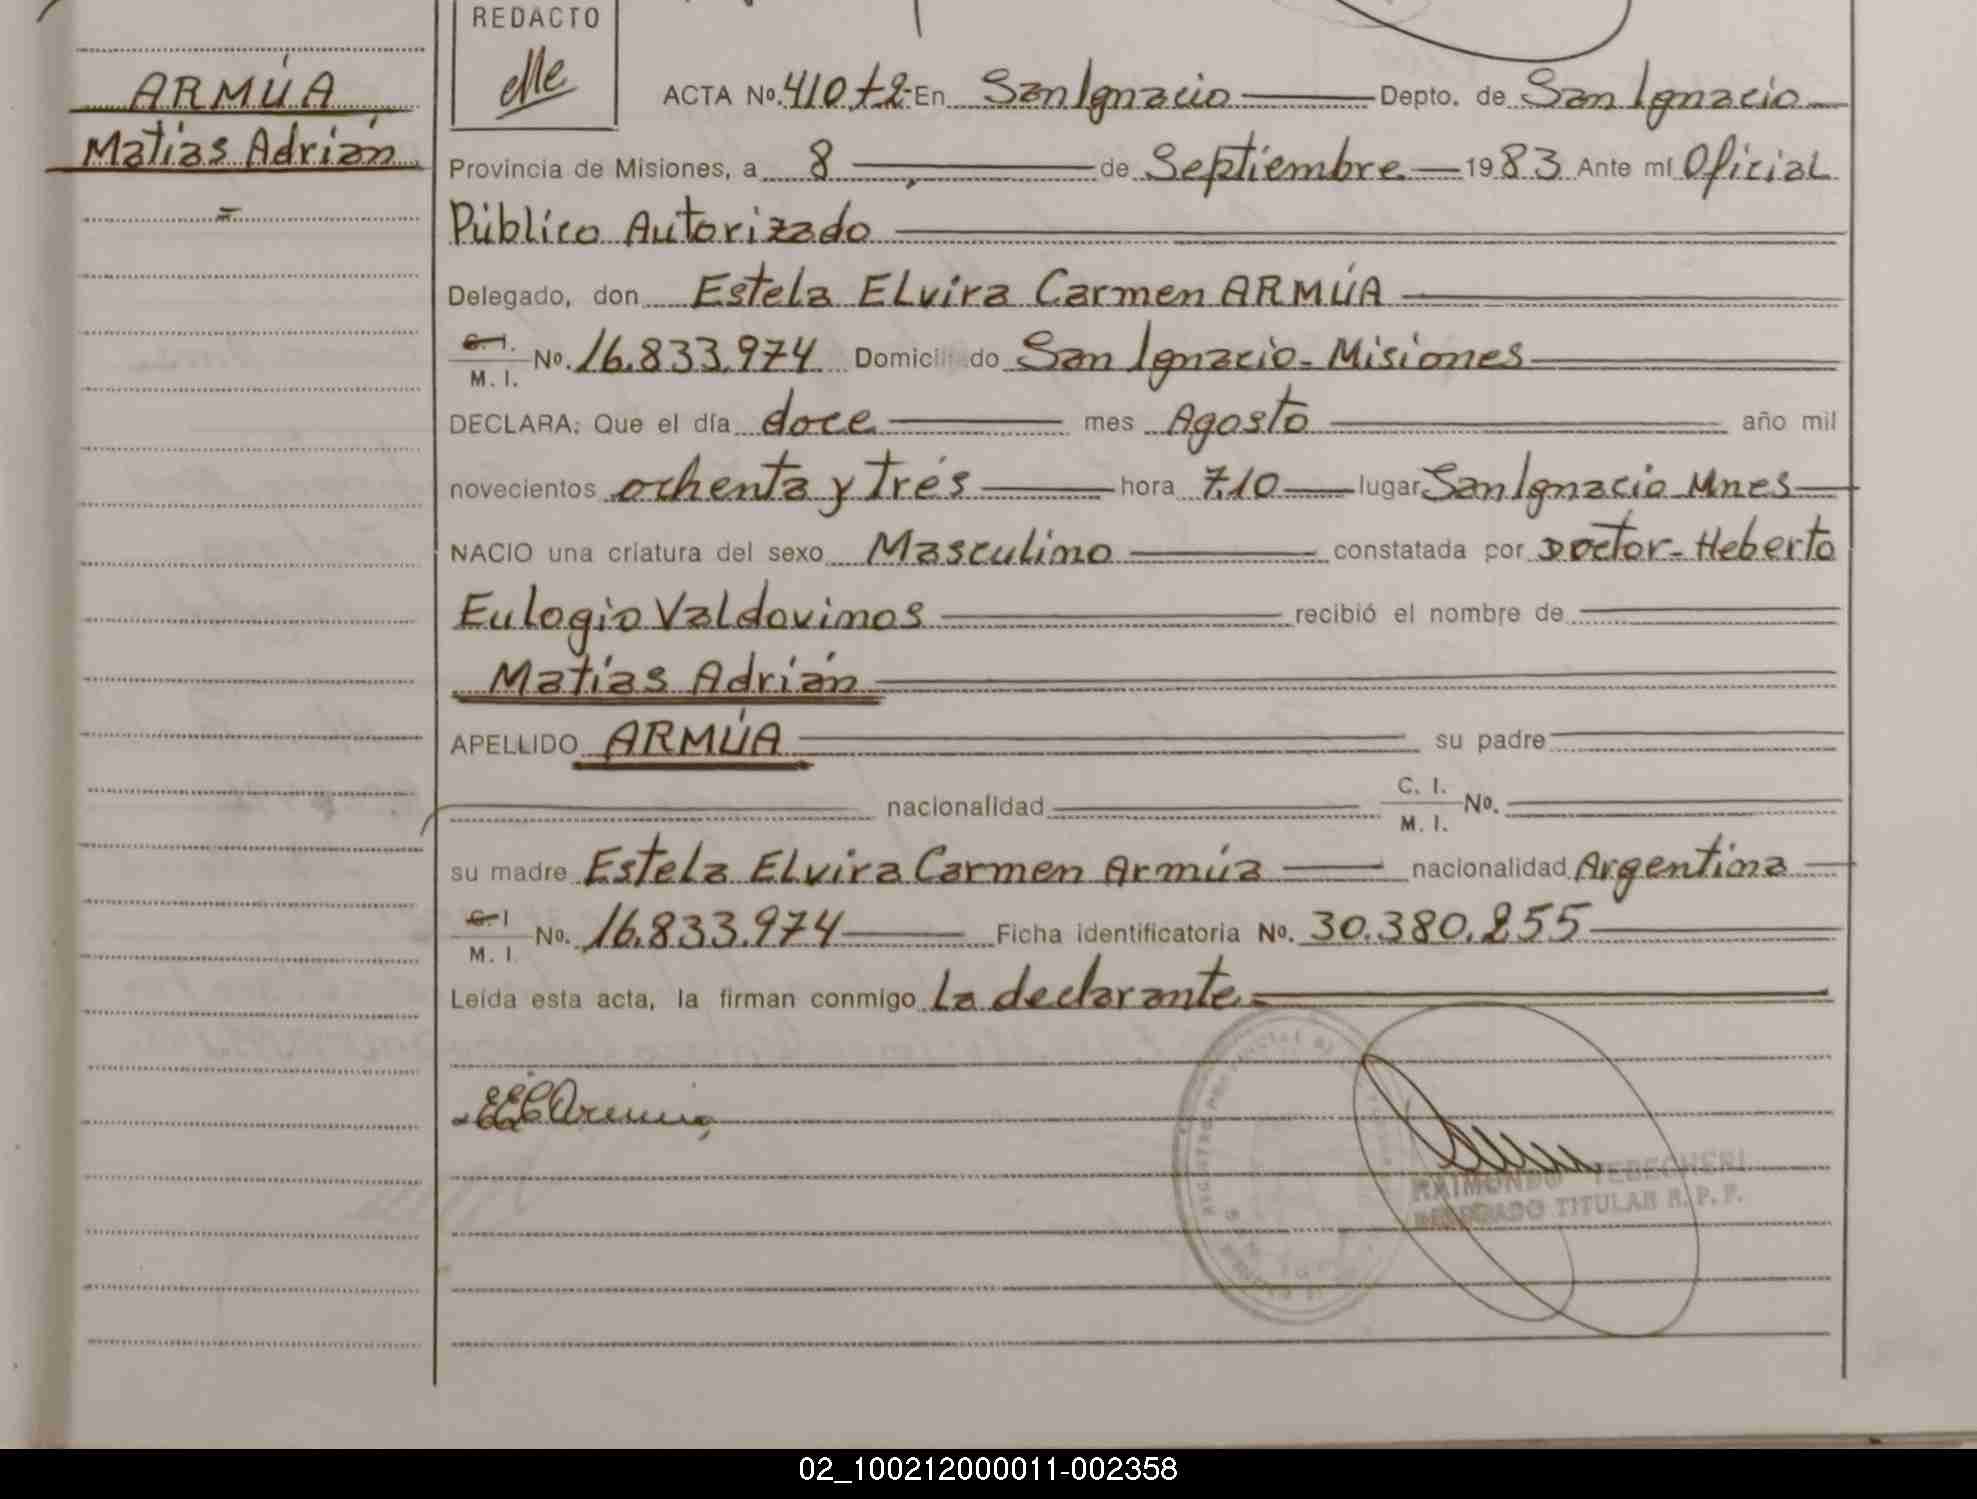 REDACTO
ARMÚA
Matías Adrián
ACTA No. 410 t2 En San Ignacio Depto. de San Ignacio
Provincia de Misiones, a 8 de Septiembre 1983 Ante mí Oficial
Público Autorizado
Delegado, don Estela Elvira Carmen ARMÚA
C. I.
M. I. No. 16.833.974 Domiciliado San Ignacio - Misiones
DECLARA: Que el día doce mes Agosto año mil
novecientos ochenta y trés hora 7,10 lugar San Ignacio Mnes
NACIO una criatura del sexo Masculino constatada por Doctor - Heberto
Eulogio Valdovinos recibió el nombre de
Matías Adrián
APELLIDO ARMÚA su padre
nacionalidad C. I.
M. I. No.
su madre Estela Elvira Carmen Armúa nacionalidad Argentina
C. I
M. I No. 16.833.974 Ficha identificatoria No. 30.380.255
Leída esta acta, la firman conmigo La declarante
RAIMUNDO
TITULAR R. P. P.
02_100212000011-002358